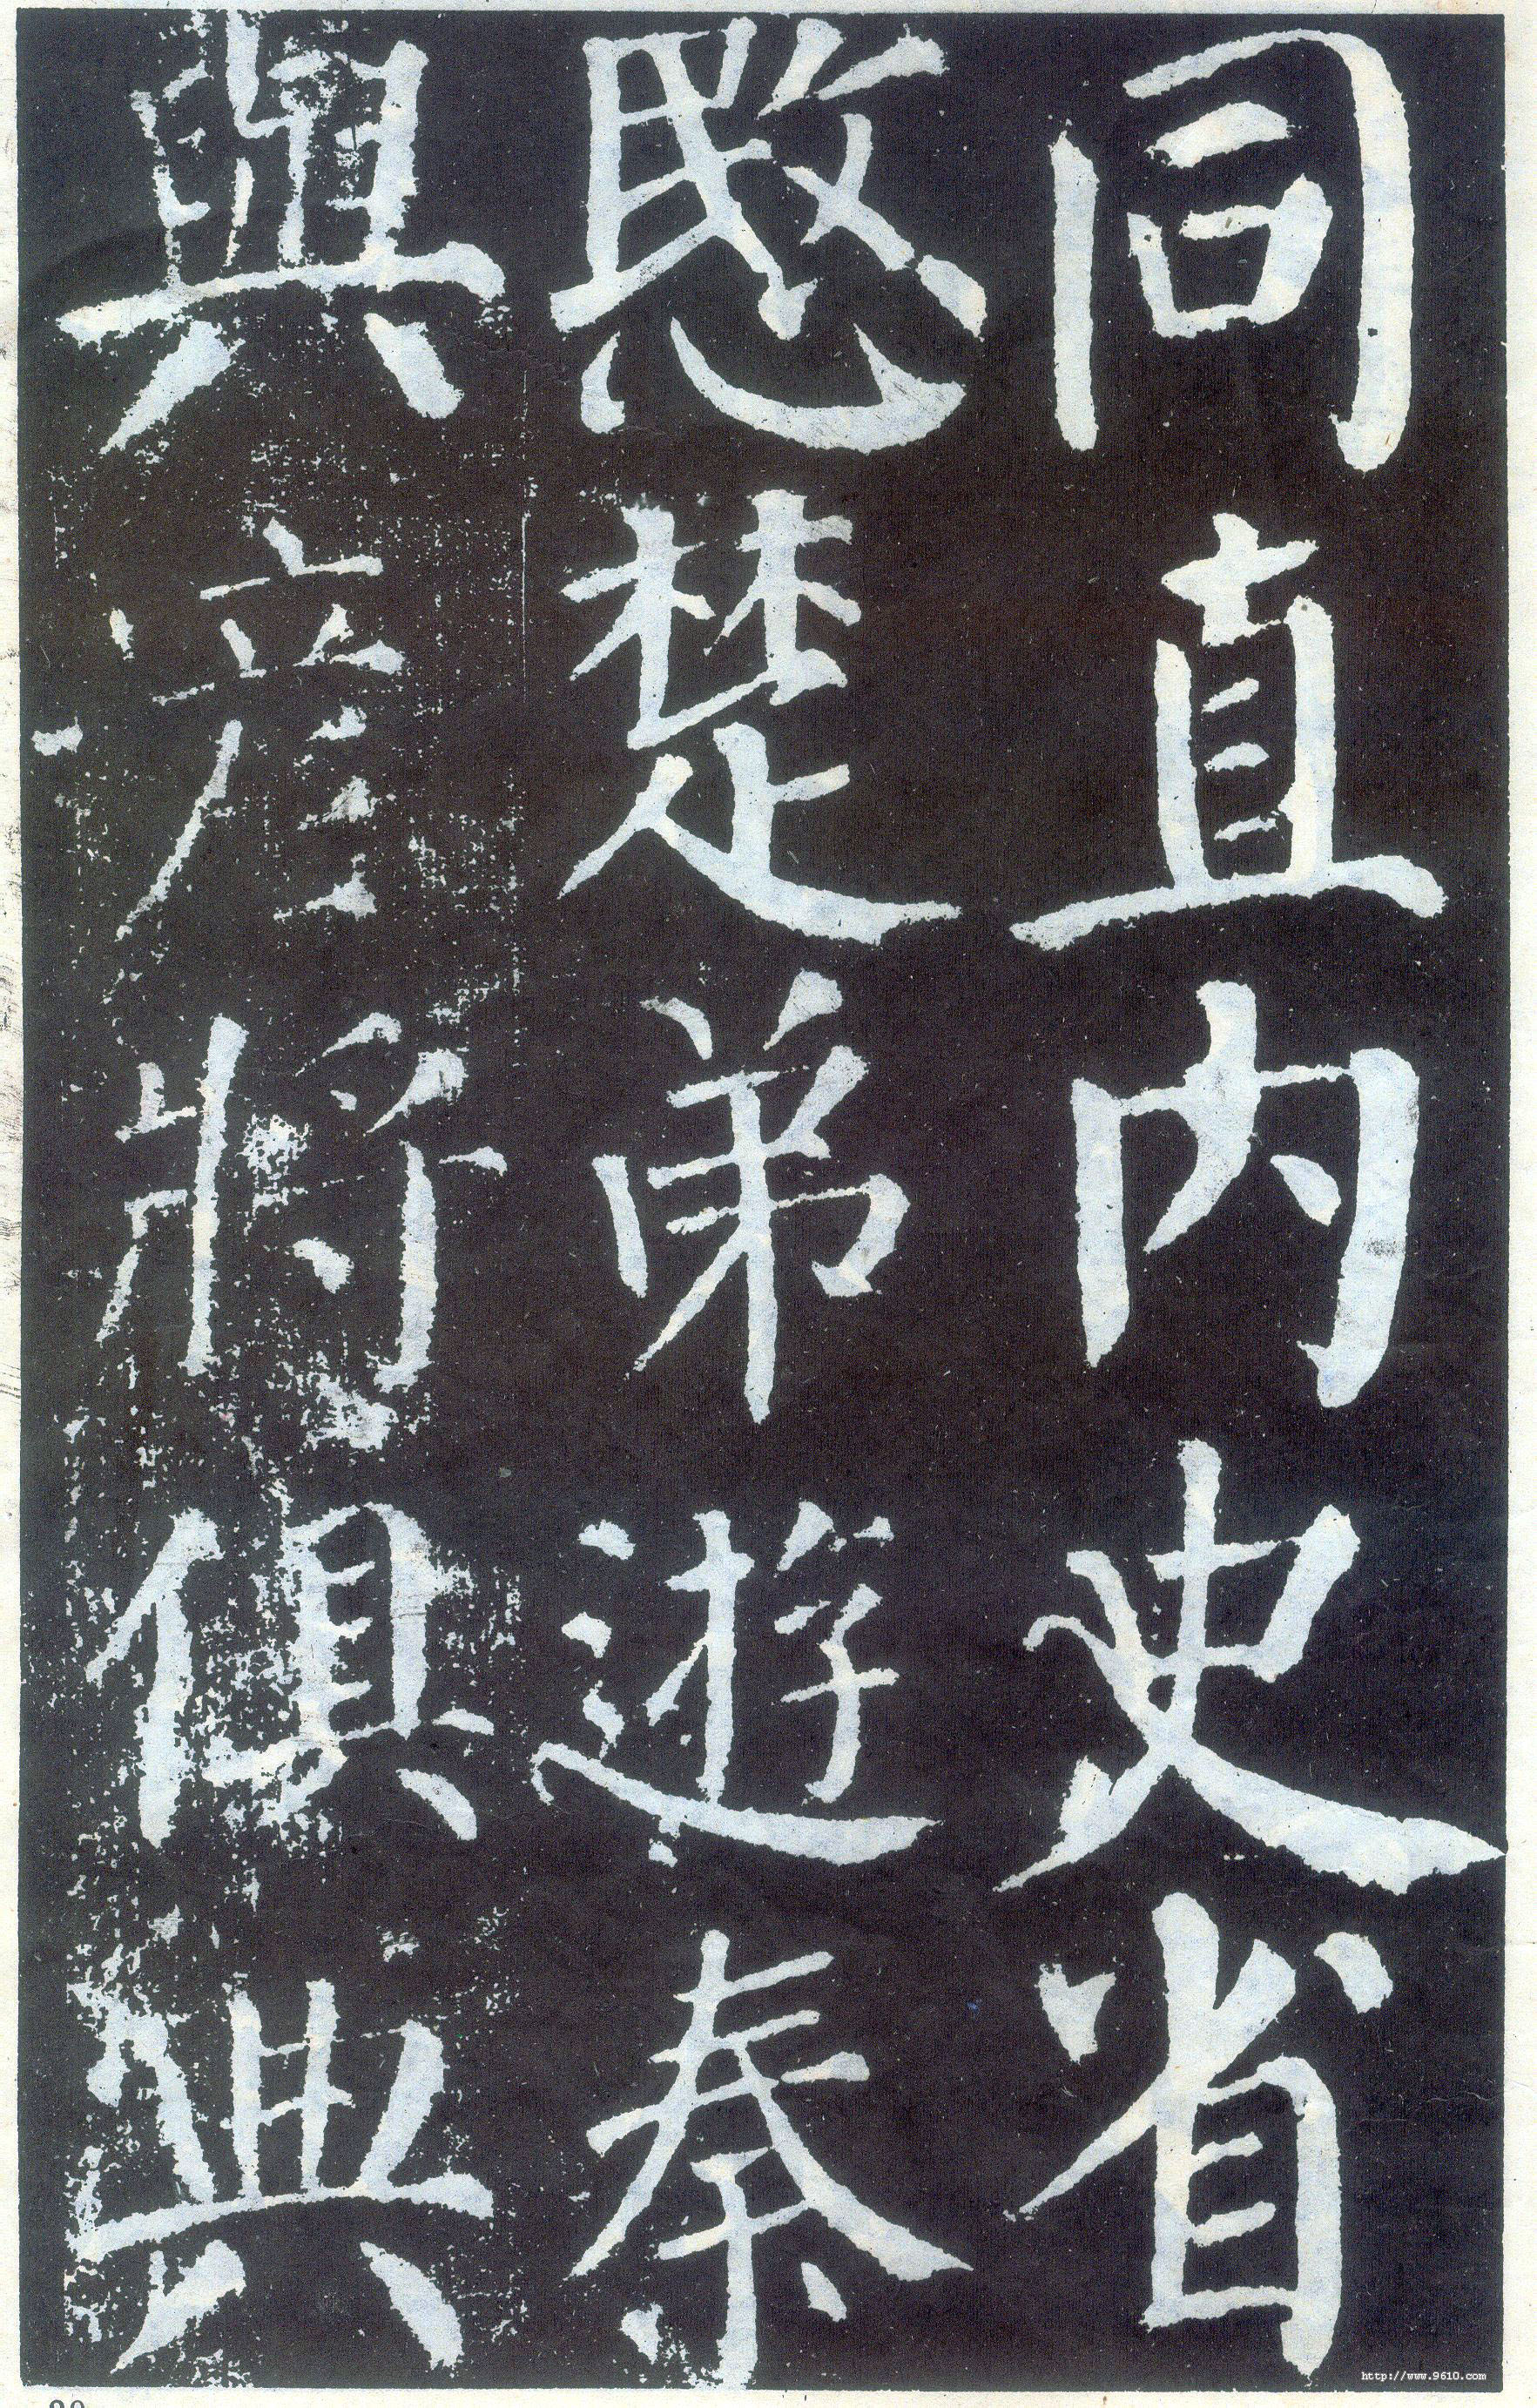 同直內史省
愍楚弟遊秦
與彥將俱典
http://www.9610.com